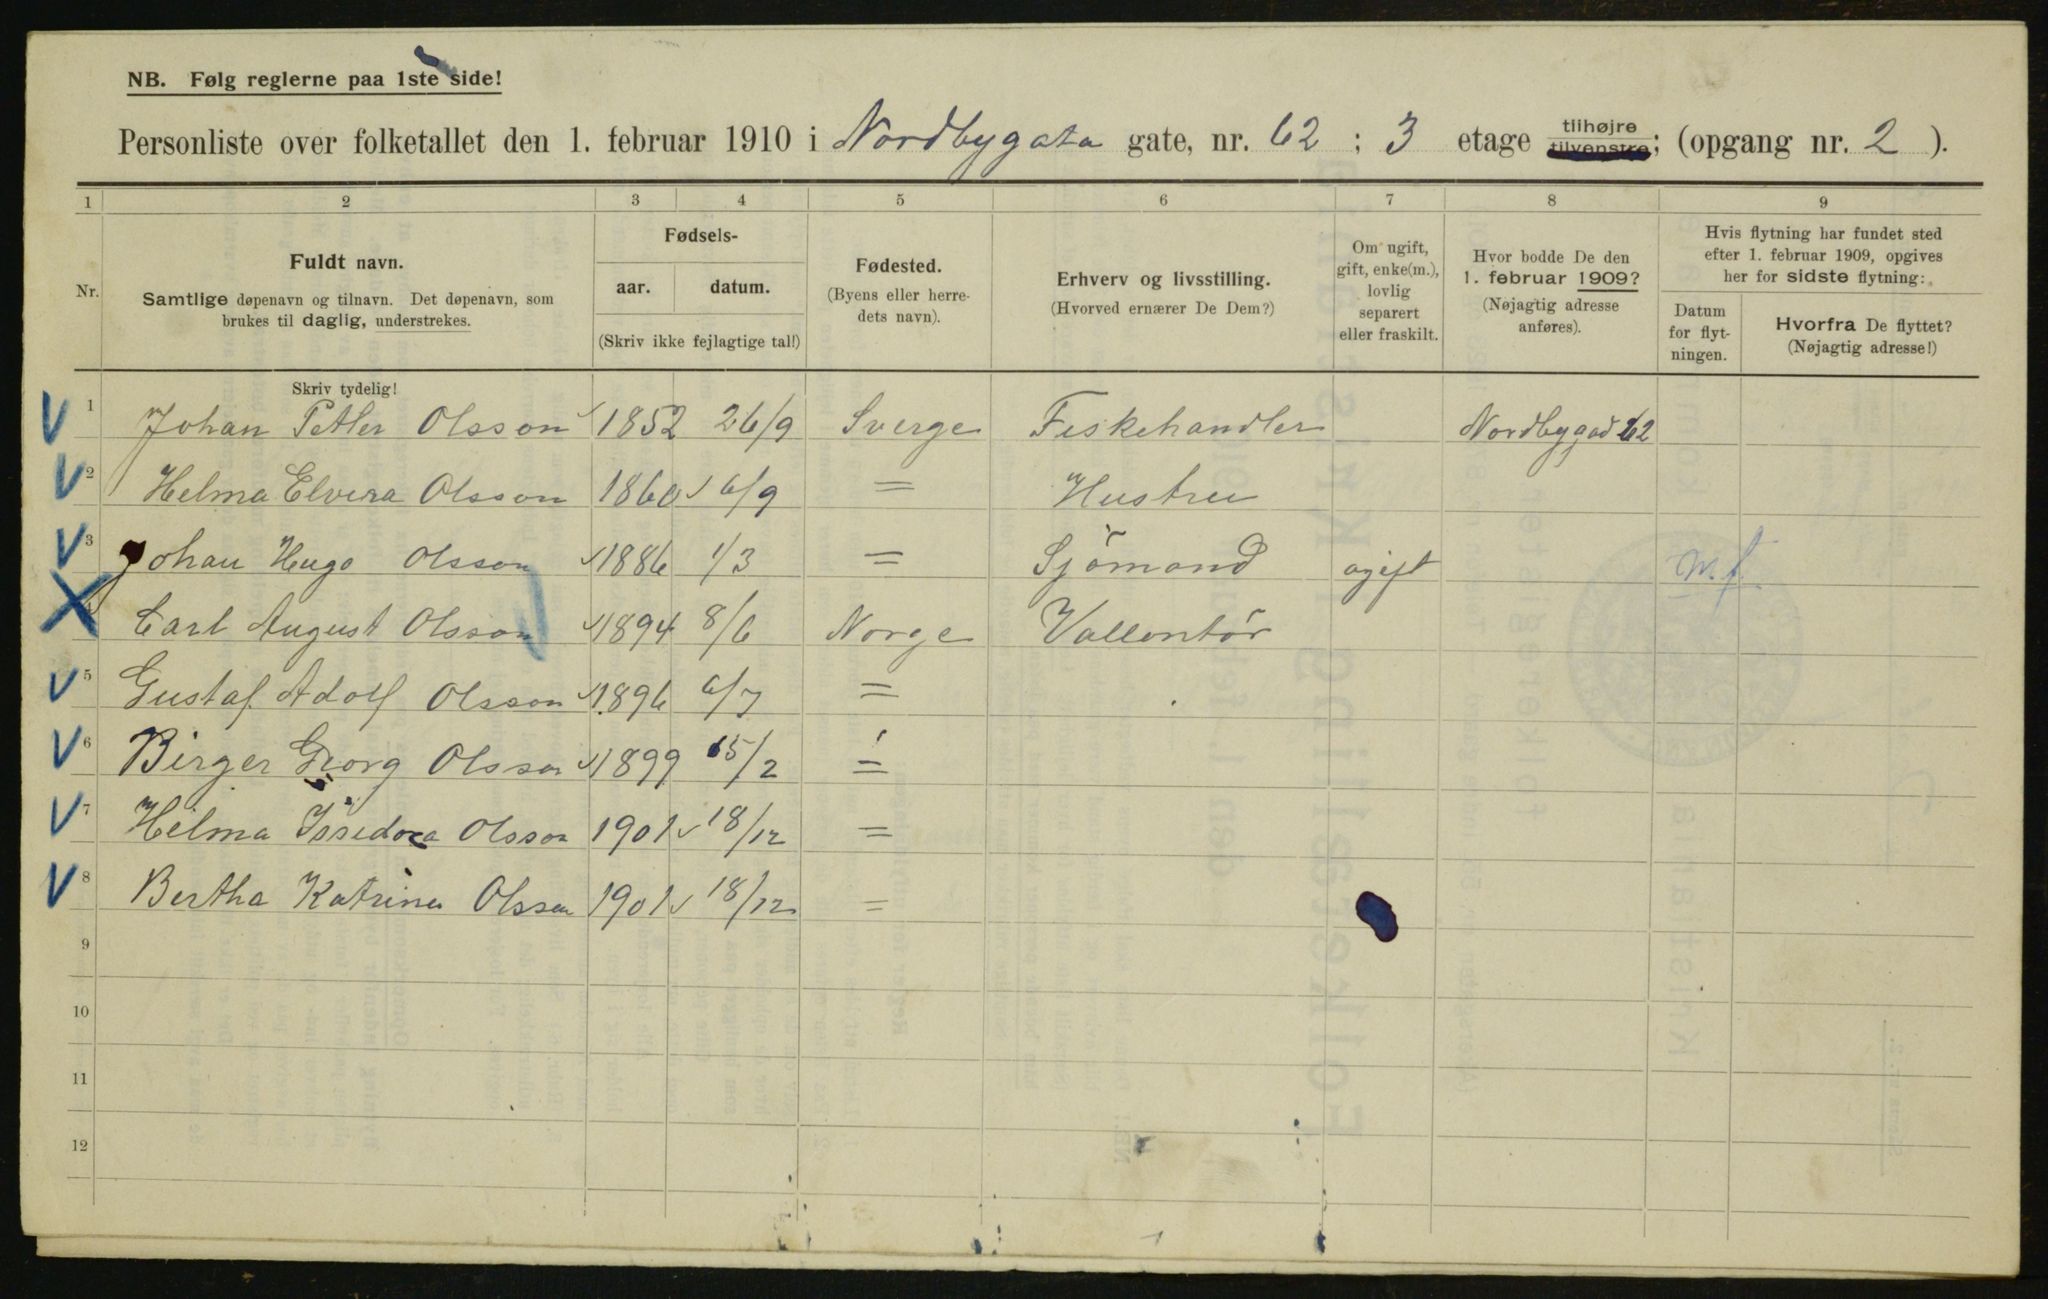 NB. Følg reglerne paa 1ste side!
Personliste over folketallet den 1. februar 1910 i Nordbygata gate, nr. 62 ; 3 etage tilhøjre tilvenstre; (opgang nr. 2 ).
1 2 3 4 5 6 7 8 9
Nr.
Fuldt navn.
Samtlige døpenavn og tilnavn. Det døpenavn, som
brukes til daglig, understrekes.
Fødsels-
aar. datum.
(Skriv ikke fejlagtige tal!)
Fødested.
(Byens eller herre-
dets navn).
Erhverv og livsstilling.
(Hvorved ernærer De Dem?)
Om ugift,
gift, enke(m.),
lovlig
separert
eller fraskilt.
Hvor bodde De den
1. februar 1909?
(Nøjagtig adresse
anføres).
Hvis flytning har fundet sted
efter 1. februar 1909, opgives
her for sidste flytning:
Datum
for flyt-
ningen.
Hvorfra De flyttet?
(Nøjagtig adresse!)
Skriv tydelig!
1 Johan Petter Olsson 1852 26/9 Sverge Fiskehandler Nordbygad 62
2 Helma Elvira Olsson 1860 6/9 = Hustru
3 Johan Hugo Olsson 1886 1/3 = Sjömand ogift m.f.
4 Carl August Olsson 1894 8/6 Norge Vallontör
5 Gustaf Adolf Olsson 1896 6/7 =
6 Birger Georg Olsson 1899 15/2 =
7 Hilma Issedora Olsson 1901 18/12 =
8 Bertha Katrina Olsson 1901 18/12 =
9
10
11
12